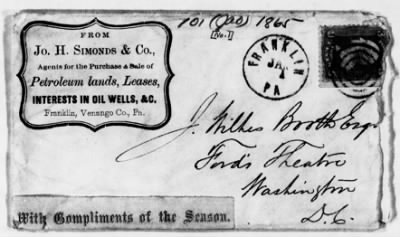 101 (Jad) 1865
[No. 1]
FROM
JO. H. SIMONDS & CO.,
Agents for the Purchase & Sale of
Petroleum lands, Leases,
INTERESTS IN OIL WELLS, &C.
Franklin, Venango Co., Pa.
FRANKLIN
JAN
1
PA
J. Wilkes Booth Esq
Ford's Theatre
Washington
D.C.
With Compliments of the Season.